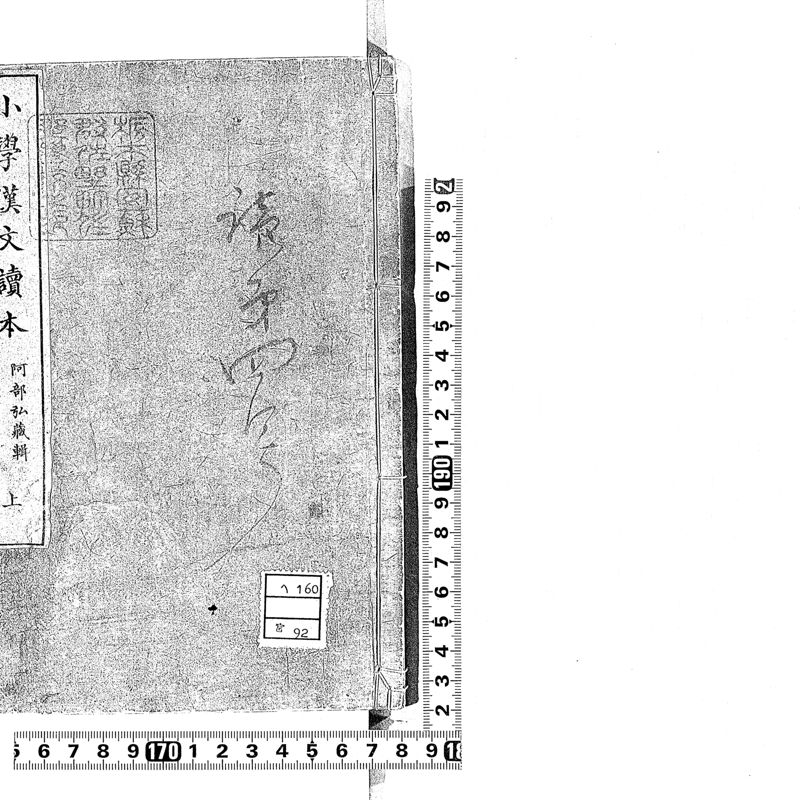 小學漢文讀本
阿部弘藏輯
上
讀第四号
ヘ 160
宮 92
2
9
8
7
6
5
4
3
2
1
190
9
8
7
6
5
4
3
2
5 6 7 8 9 170 1 2 3 4 5 6 7 8 9 18